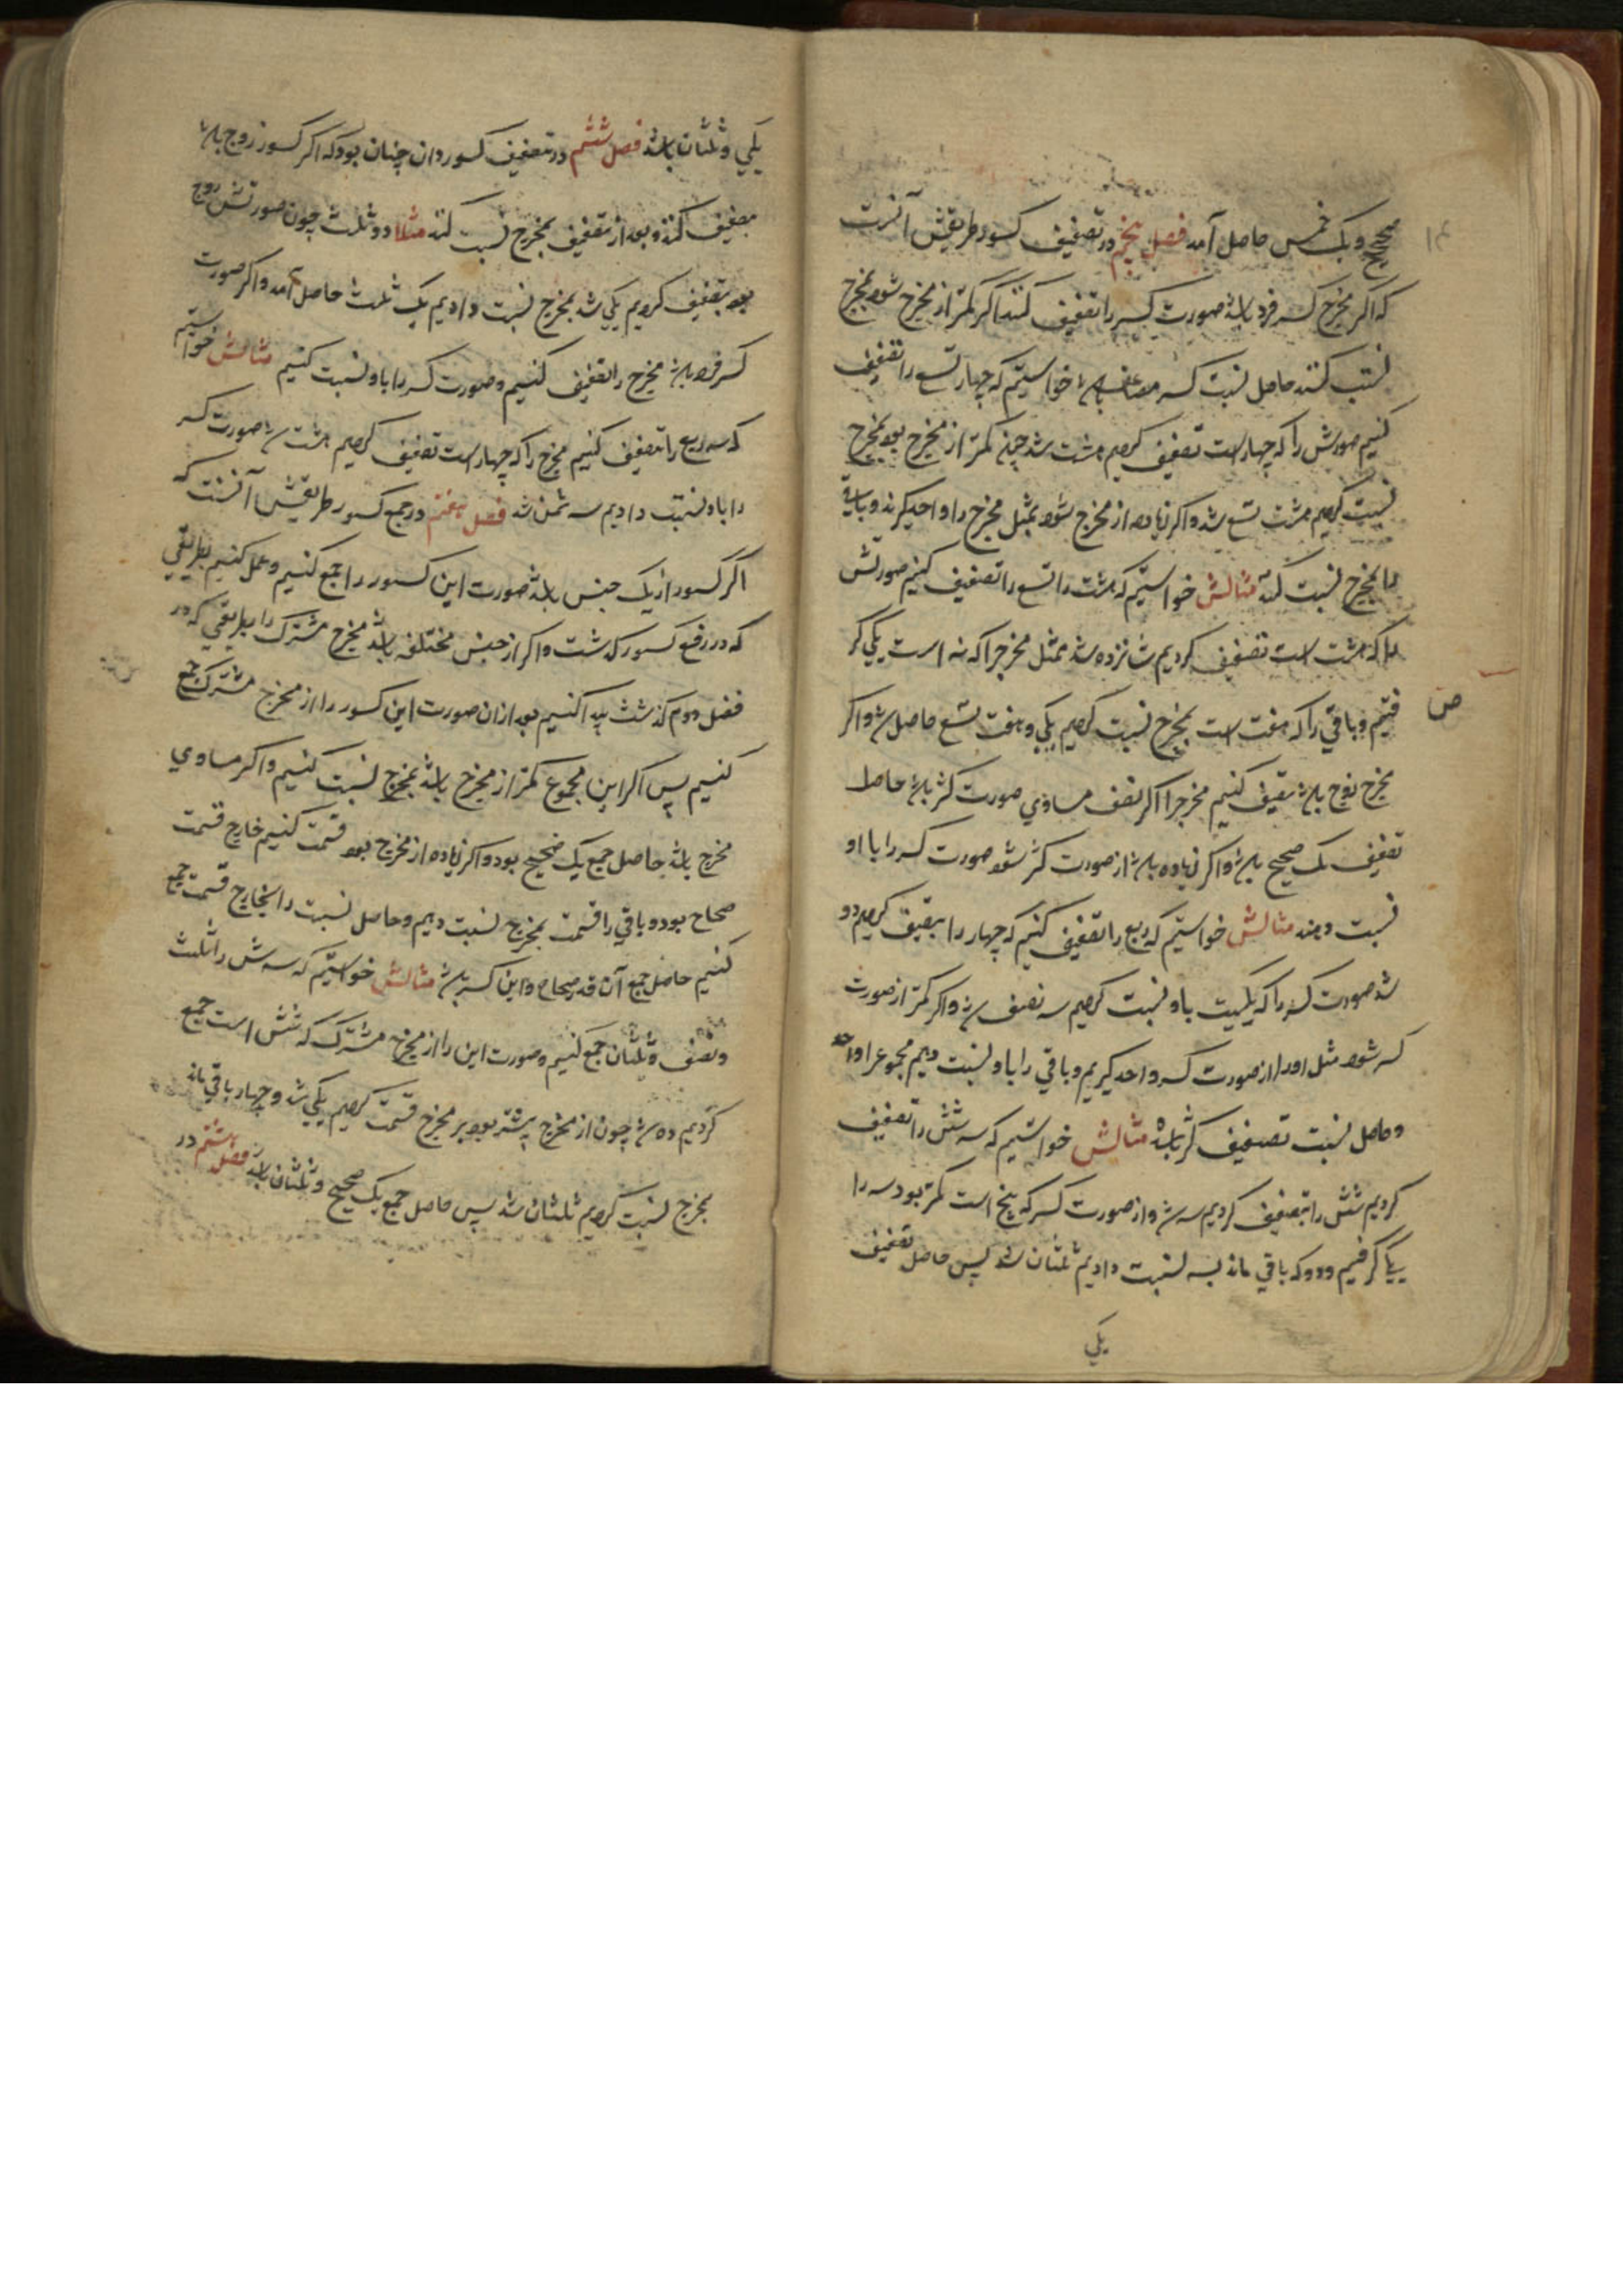 صحیح و یک خمس حاصل آمد فصل پنجم در تضعیف کسور طریقش آنست
که اگر مخرج کسر فرد باشد صورت کسر را تضعیف کنند اگر کمتر از مخرج شود بمخرج
نسبت کنند حاصل نسبت کسر مضاعف باشد خواستیم که چهار تسع را تضعیف
کنیم صورتش را که چهار است تضعیف کردیم هشت شد چون کمتر از مخرج بود بمخرج
نسبت کردیم هشت تسع شد و اگر زیاده از مخرج شود بمثل مخرج را واحد گیرند و باقی
را بمخرج نسبت کنند مثالش خواستیم که هشت تسع را تضعیف کنیم صورتش
را که هشت است تضعیف کردیم شانزده شد بمثل مخرج را که نه است یکی گر
فتیم و باقی را که هفت است بمخرج نسبت کردیم یکی و هفت تسع حاصل شد و اگر
مخرج زوج باشد تنصیف کنیم مخرج را اگر نصف مساوی صورت کسر باشد حاصل
تضعیف یک صحیح باشد و اگر زیاده باشد از صورت کسر شود صورت کسر را با او
نسبت دهند مثالش خواستیم که ربع را تضعیف کنیم که چهار را تنصیف کردیم دو
شد صورت کسر را که یکیست باو نسبت کردیم نصف شد و اگر کمتر از صورت
کسر شود مثل او را از صورت کسر واحد گیریم و باقی را باو نسبت دهیم مجموع را واحد
و حاصل نسبت تضعیف کسر باشد مثالش خواستیم که شش را تضعیف
کردیم شش را تنصیف کردیم سه شد و از صورت کسر که پنج است کمتر بود سه را
یکی گرفتیم و دو که باقی ماند بسه نسبت دادیم ثلثان شد پس حاصل تضعیف
یکی
یکی و ثلثان باشد فصل ششم در تنصیف کسور و ان چنان بود که اگر کسور زوج باشد
تنصیف کنند و بعد از تنصیف بمخرج نسبت کنند مثلا دو ثلث چون صورتش زوج
بود تنصیف کردیم یکی شد بمخرج نسبت دادیم یک ثلث حاصل آمد و اگر صورت
کسر فرد باشد مخرج را تضعیف کنیم و صورت کسر را باو نسبت کنیم مثالش خواستیم
که سه ربع را تنصیف کنیم مخرج را که چهار است تضعیف کردیم هشت شد صورت کسر
را باو نسبت دادیم سه ثمن شد فصل هفتم در جمع کسور طریقش آنست که
اگر کسور از یک جنس باشد صورت این کسور را جمع کنیم و عمل کنیم بطریقی
که در رفع کسور گذشت و اگر از جنس مختلفه باشد مخرج مشترک را بطریقی که در
فصل دوم گذشت پیدا کنیم بعد ازان صورت این کسور را از مخرج مشترک جمع
کنیم پس اگر این مجموع کمتر از مخرج باشد بمخرج نسبت کنیم و اگر مساوی
مخرج باشد حاصل جمع یک صحیح بود و اگر زیاده از مخرج بود قسمت کنیم خارج قسمت
صحاح بود و باقی را قسمت بمخرج نسبت دهیم و حاصل نسبت را بخارج قسمت جمع
کنیم حاصل جمع آن قدر صحاح و این کسر باشد مثالش خواستیم که سه شش را ثلث
و نصف و ثلثان جمع کنیم و صورت این را از مخرج مشترک که شش است جمع
کردیم ده شد چون از مخرج بیشتر بود بر مخرج قسمت کردیم یکی شد و چهار باقی ماند
بمخرج نسبت کردیم ثلثان شد پس حاصل جمع یک صحیح و ثلثان باشد فصل هشتم در